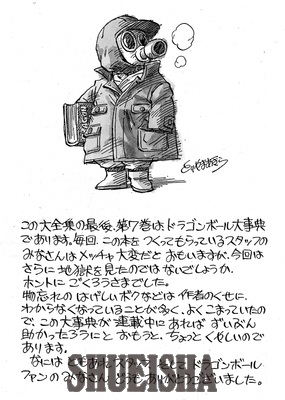 とりやまあきら
この大全集の最後、第7巻は、ドラゴンボール大事典
であります。毎回、この本をつくってもらっているスタッフの
みなさんはメッチャ大変だとおもいますが、今回は
さらに地獄を見たのではないでしょうか。
ホントにごくろうさまでした。
物忘れのはげしいボクなどは作者のくせに、
わからなくなっていることが多く、よくこまっていたの
で、この大事典が連載中にあれば ずいぶん
助かったろうにとおもうと、ちょっとくやしいので
あります。
なにはともあれスタッフ、そしてドラゴンボール
ファンのみなさん どうもありがとうございました。
SHUEISHA